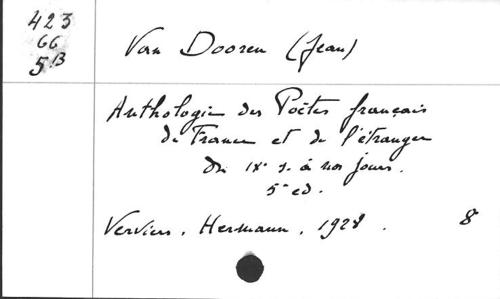 423
66
5B
Van Dooren (Jean)
Anthologie des Poëtes français
de France et de l'étranger
du IXe s. à nos jours.
5e ed.
Verviers. Hermann. 1928. 8